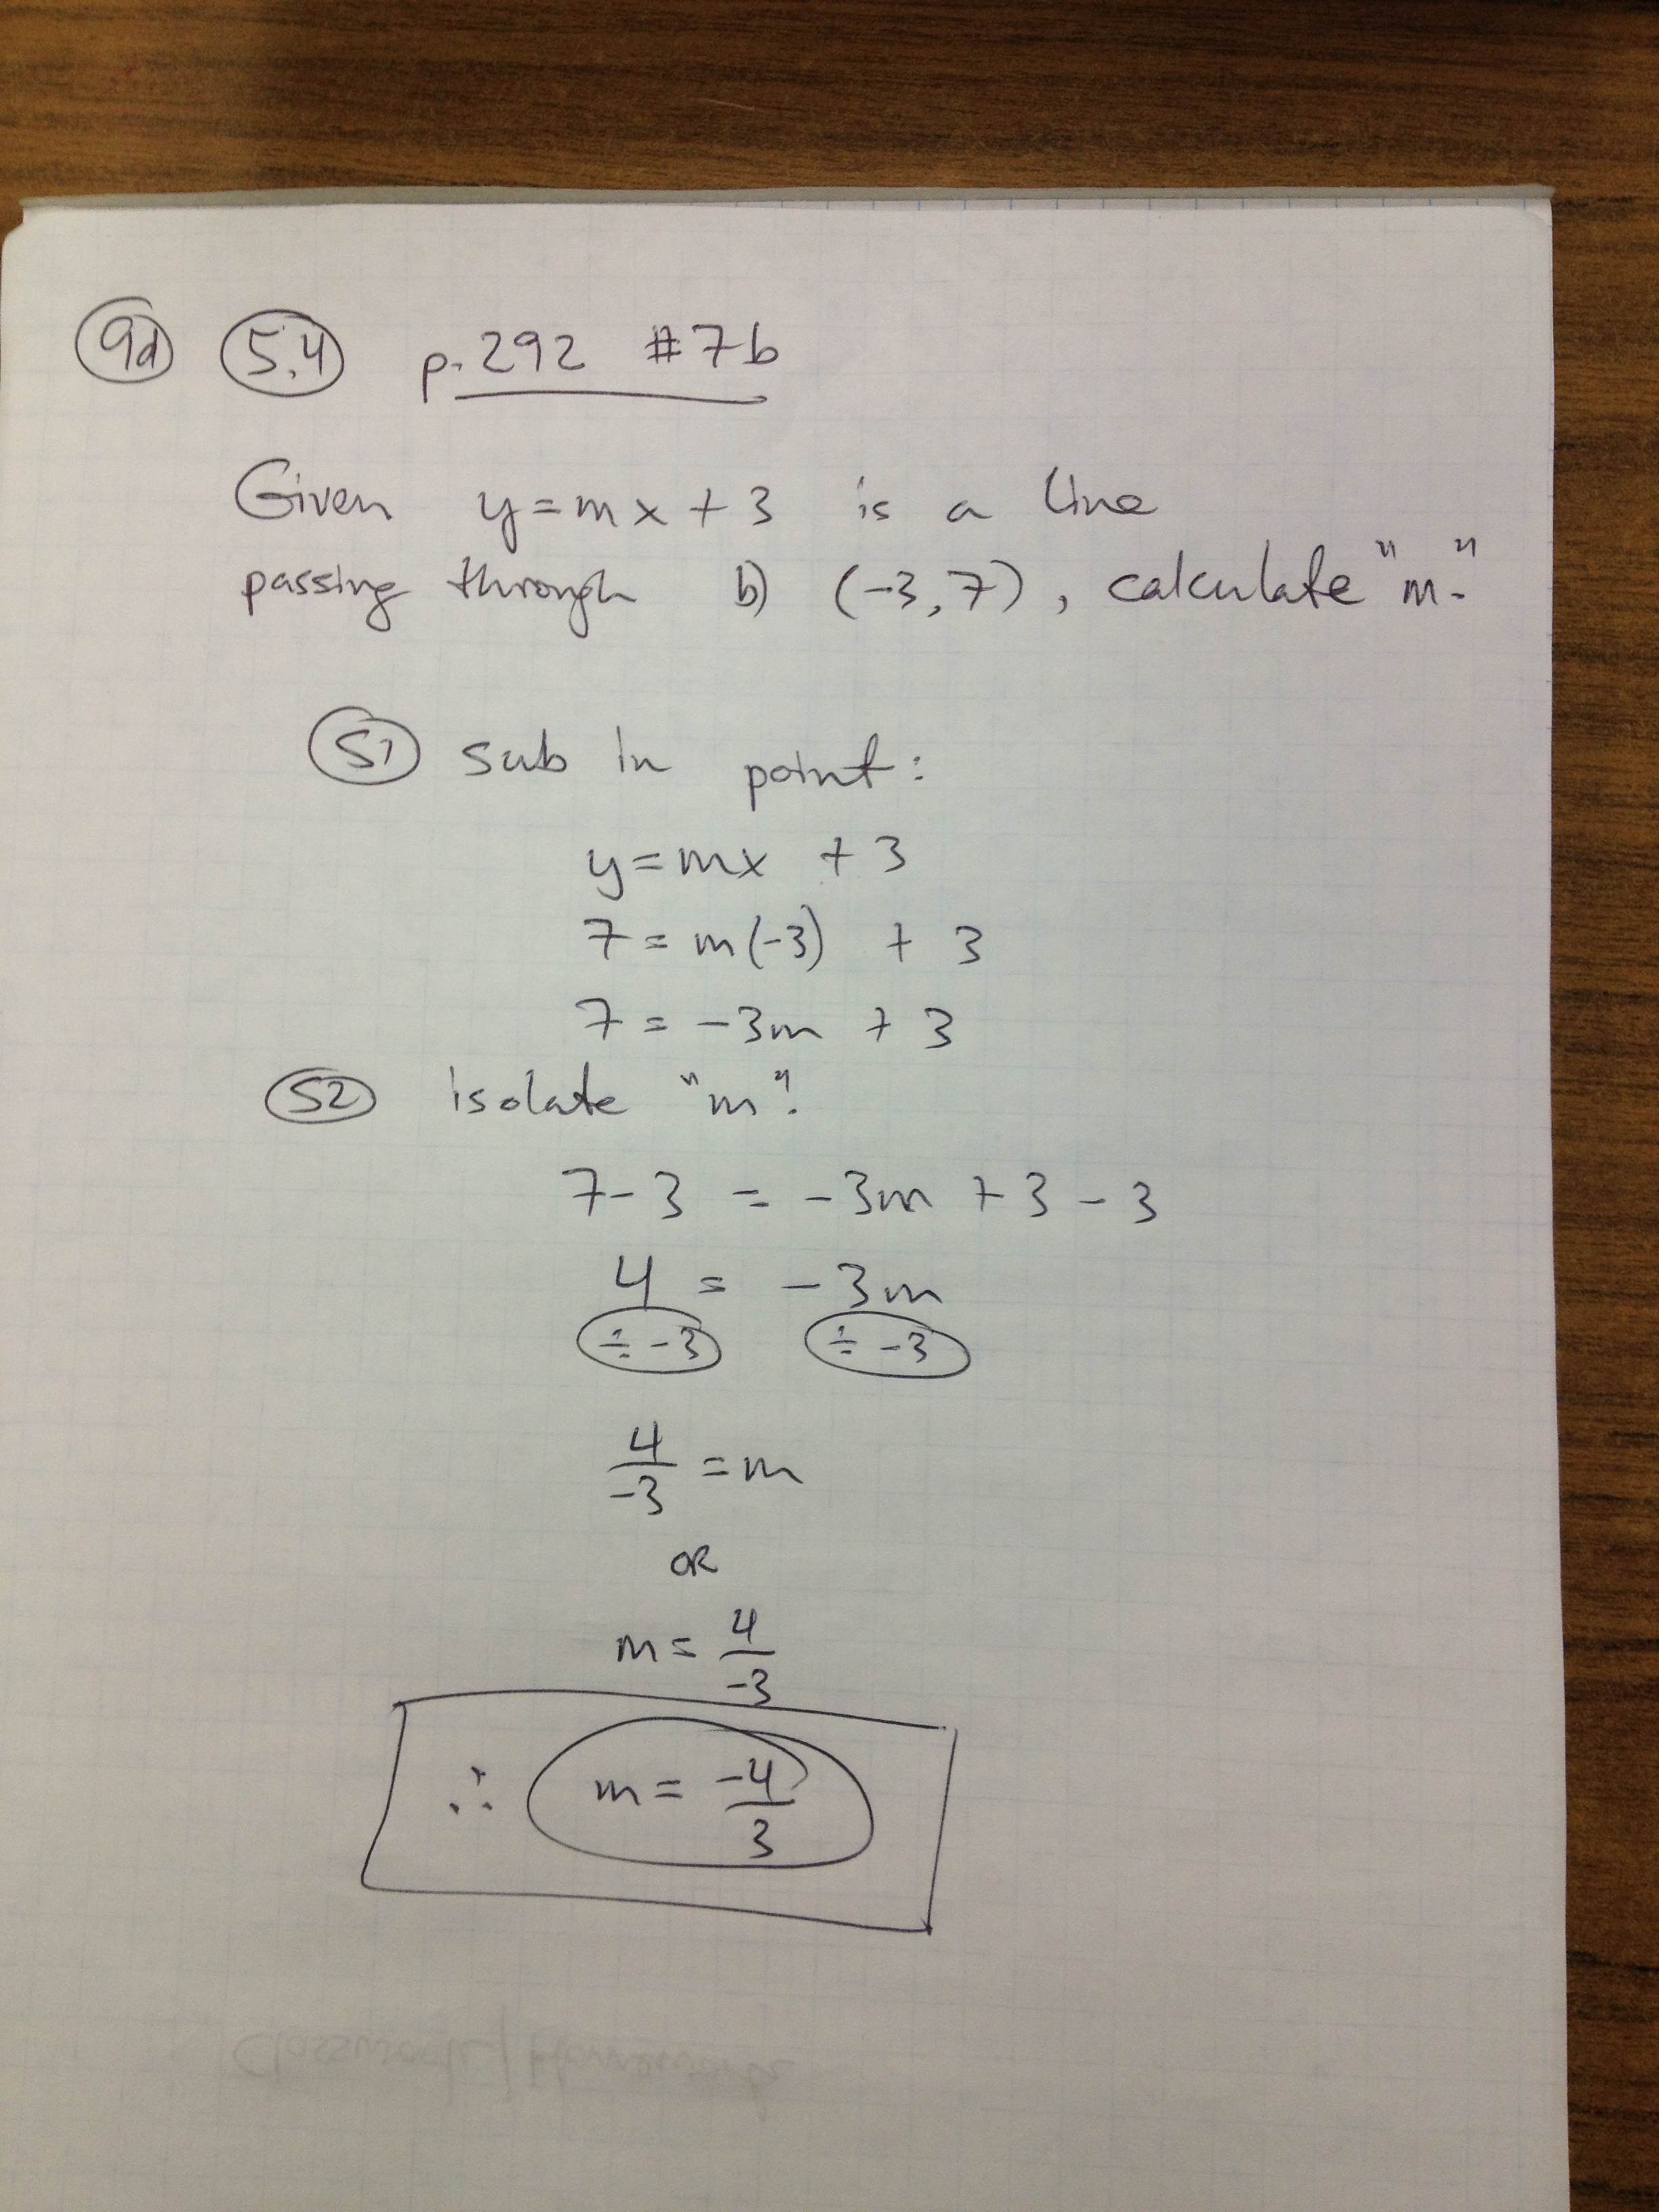 9d 5.4 p.292 #7b
Given y=mx+3 is a line
passing through b) (-3,7), calculate "m."
S1 sub in point:
y=mx +3
7=m(-3) + 3
7 = -3m + 3
S2 isolate "m".
7-3 = -3m +3 -3
4 = -3m
÷ -3 ÷ -3
4/-3 = m
OR
m= 4/-3
∴ m= -4/3
Classwork/Homework